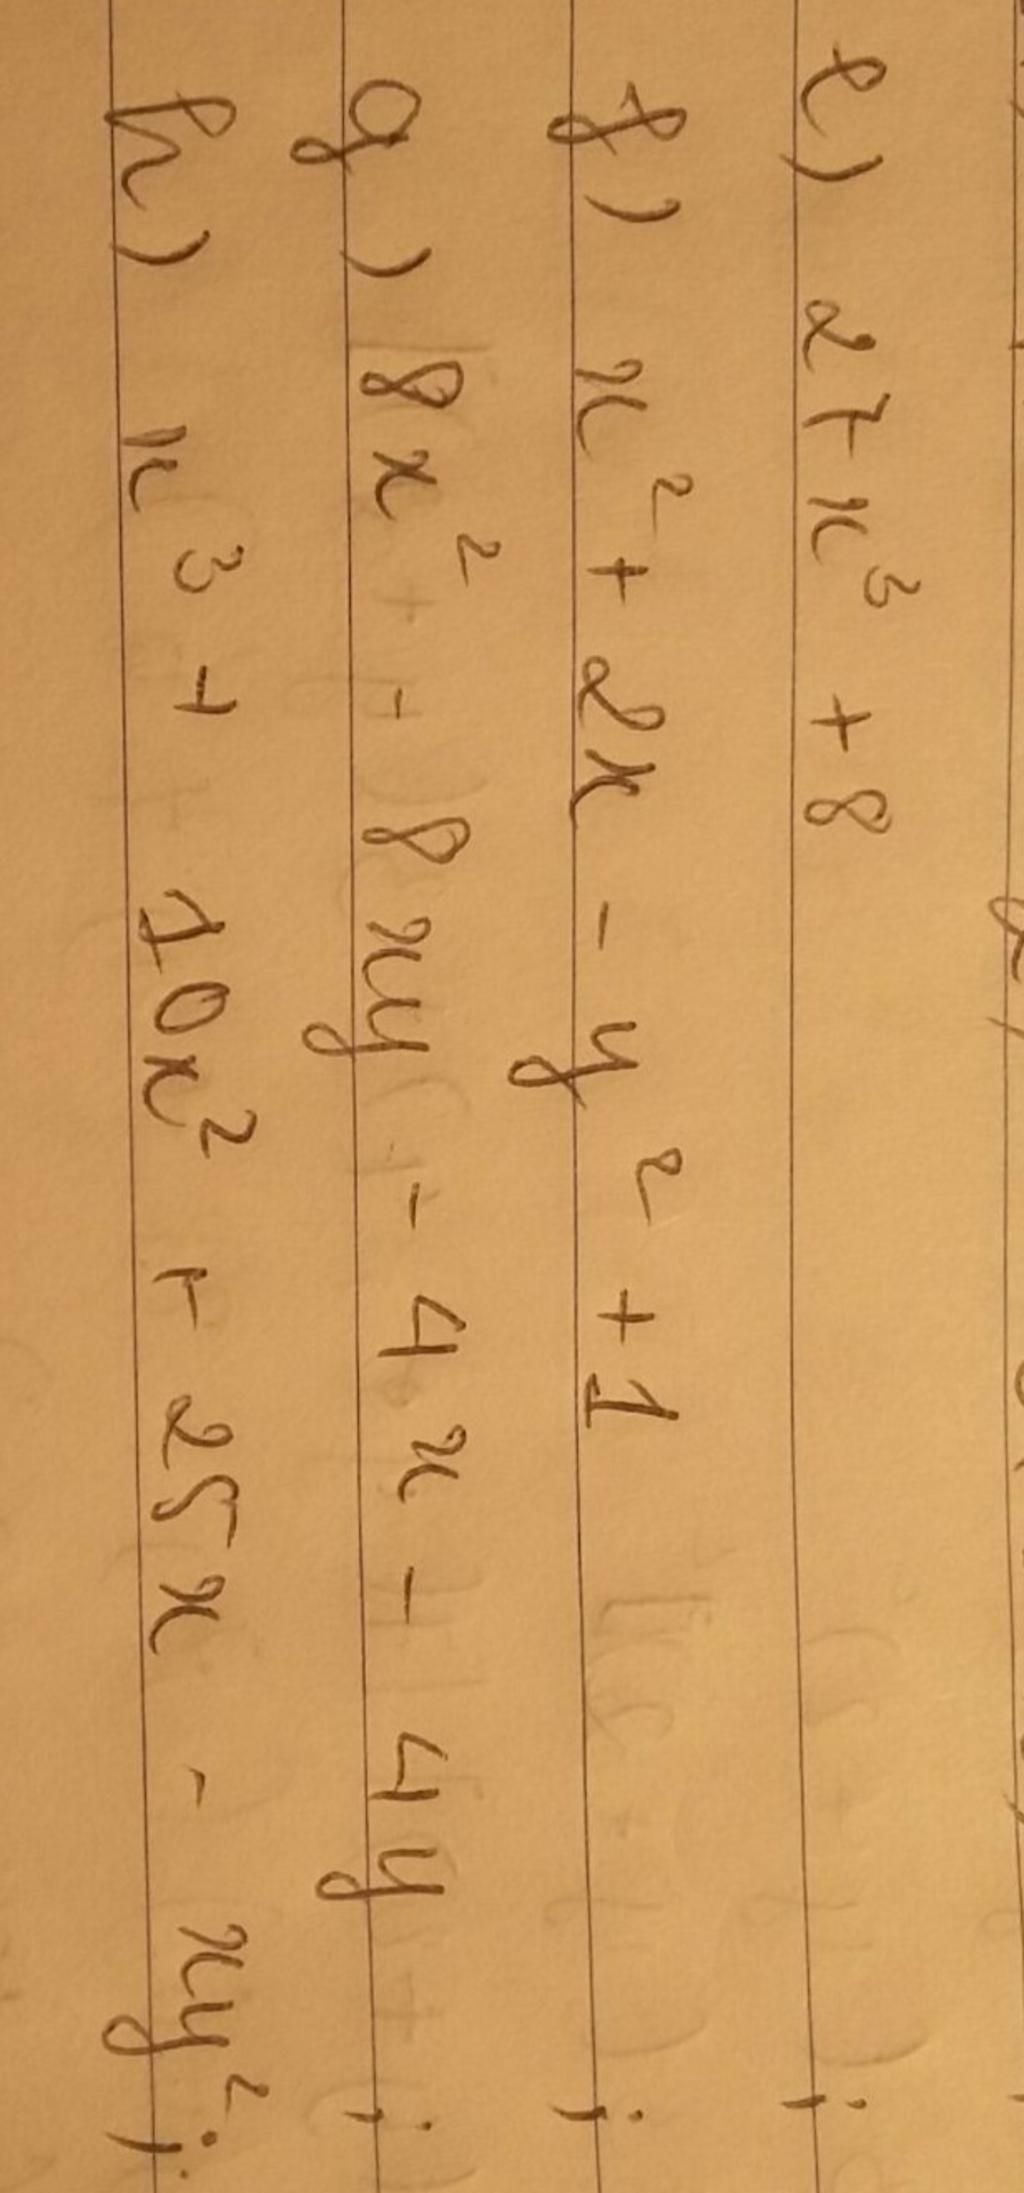 e) 27x³ + 8 ;
f) x² + 2x - y² + 1 ;
g) 8x² - 8xy - 4x - 4y ;
h) x³ + 10x² + 25x - xy² ;